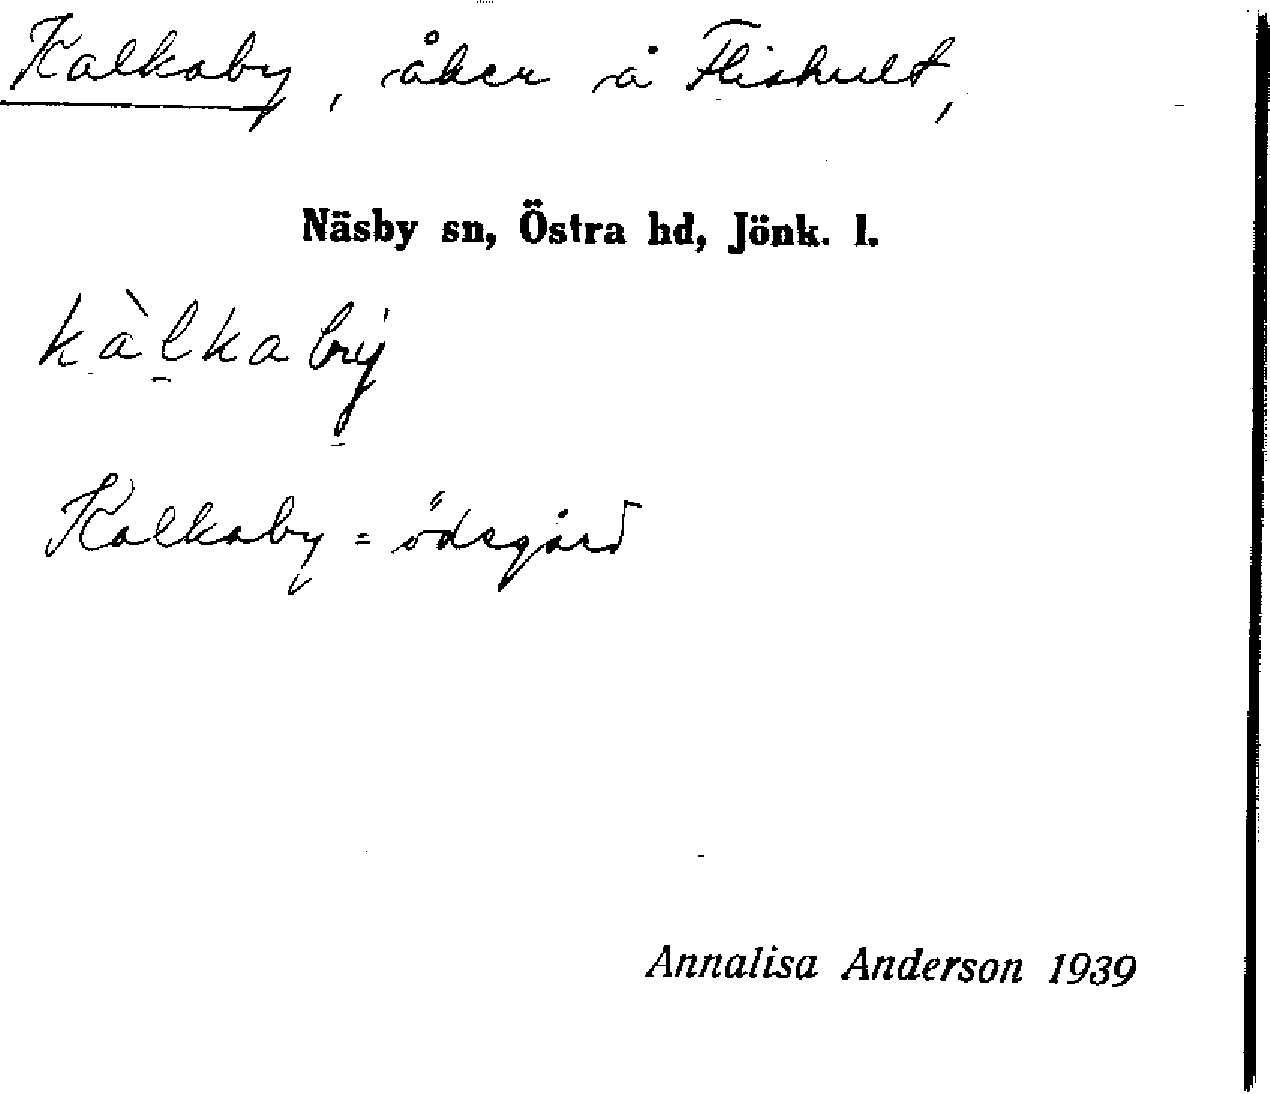 Kalkaby, åker å Flishult,
Näsby sn, Östra hd, Jönk. l.
kàlkabý
Kalkaby = ödegård
Annalisa Anderson 1939